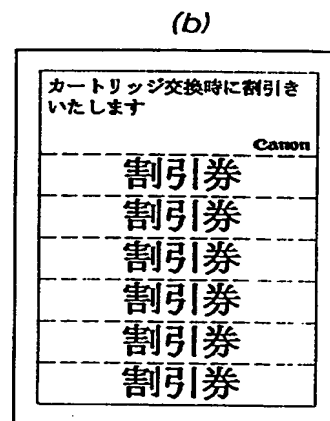 (b)
カートリッジ交換時に割引き
いたします
Canon
割引券
割引券
割引券
割引券
割引券
割引券